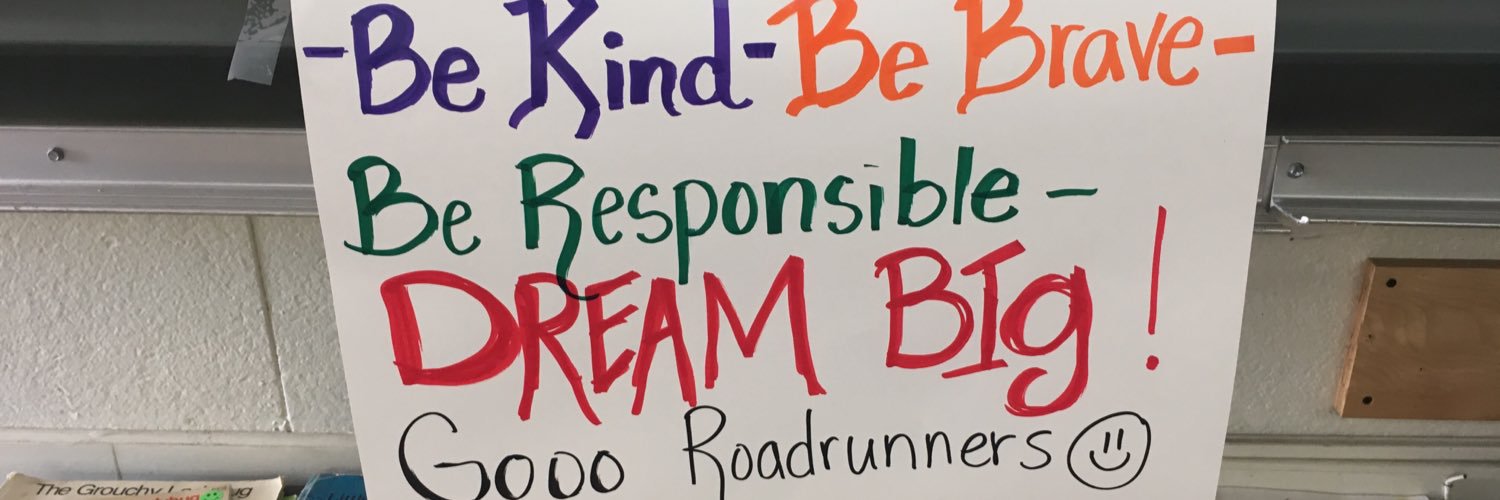 -Be Kind-Be Brave-
Be Responsible-
DREAM BIg!
Gooo Roadrunners
The Grouchy